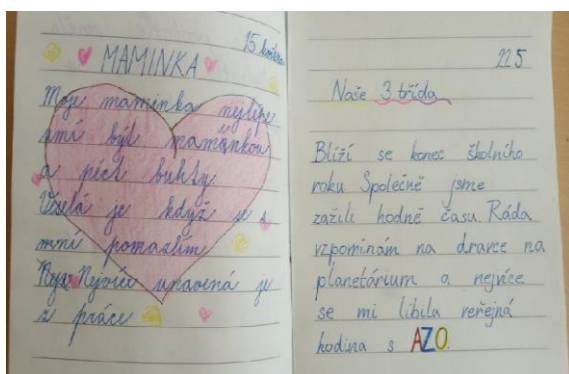 15 května
MAMINKA
Moje maminka nejlépe
umí být maminkou
a péct buchty
Veselá je když se s
mní pomazlím
Nejvíce unavená je
z práce
22.5
Naše 3 třída
Blíží se konec školního
roku Společně jsme
zažili hodně času. Ráda
vzpomínám na dravce na
planetárium a nejvíce
se mi líbila veřejná
hodina s AZO.